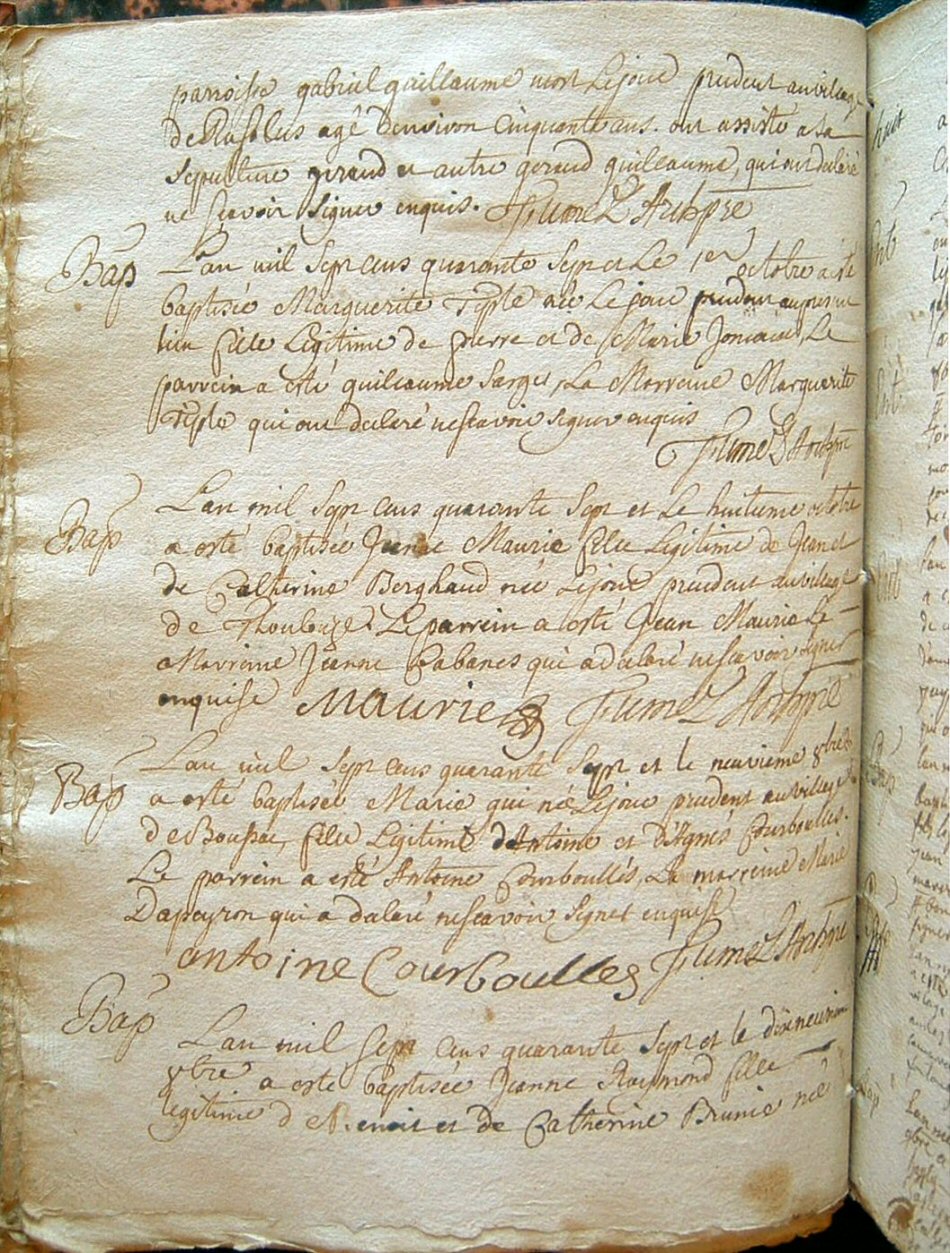 parroisse gabriel guillaume mort le jour precedent au village
de agé denviron cinquante ans. ont assisté a sa
sepulture geraud et autre geraud guillaume, qui ont declaré
ne scavoir signer enquis. Fumel Archpre
Bap
L'an mil sept cens quarante sept et le 1er octobre a été
baptisée Marguerite née le jour precedent au present
lieu fille legitime de pierre et de Marie Le
parrein a esté guillaume Sarges, La Marreine Marguerite
qui ont declaré ne scavoir signer enquis
Fumel Archpre
Bap
L'an mil sept cens quarante sept et le huitieme octobre
a esté baptisée Jeanne Maurie fille legitime de Jean et
de Catherine Berghaud née le jour precedent au village
de Le parrein a esté Jean Maurie Le
Marreine Jeanne Cabanes qui a declaré ne scavoir signer
enquise Maurie Fumel Archpre
Bap
L'an mil sept cens quarante sept et le neuvieme 8bre
a esté baptisée Marie qui née le jour precedent au village
de Boussac, fille legitime d'Antoine et d'Agnés Courboulles.
Le parrein a esté Antoine Courboullés, La marreine Marie
Dapeyron qui a declaré ne scavoir signer enquise
antoine Courboulles Fumel Archpre
Bap
L'an mil sept cens quarante sept et le dixneuvieme
8bre a esté baptisée Jeanne Raymond fille
legitime de Benoit et de Catherine Brunie née